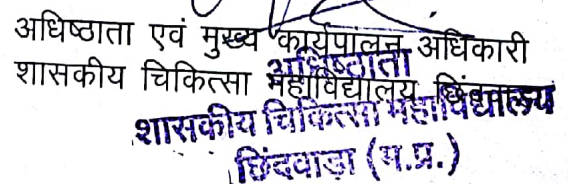 अधिष्ठाता एवं मुख्य कार्यपालन अधिकारी
अधिष्ठाता
शासकीय चिकित्सा महाविद्यालय छिंदवाड़ा
शासकीय चिकित्सा महाविद्यालय
छिंदवाड़ा (म.प्र.)